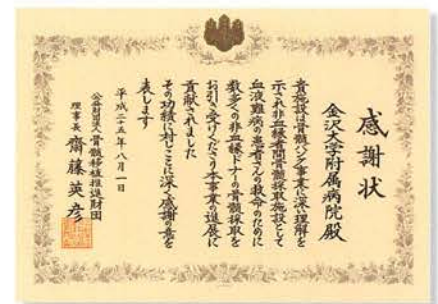 感謝状
金沢大学附属病院殿
貴施設は骨髄バンク事業に深い理解を
示され非血縁者間骨髄採取施設として
血液難病の患者さんの救命のために
数多くの非血縁ドナーの骨髄採取を
お引き受けくださり本事業の進展に
貢献されました
その功績に対しここに深く感謝の意を
表します
平成二十五年八月一日
公益財団法人骨髄移植推進財団
理事長 齋藤英彦